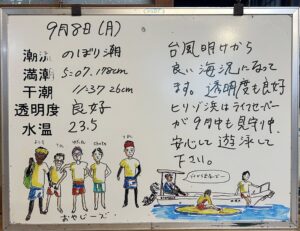 9月8日(月)
潮流 のぼり潮
満潮 5:07.178cm
干潮 11:37 26cm
透明度 良好
水温 23.5
おやじーズ
台風明けから
良い海況になって
ます。透明度も良好
ヒリゾ浜はライフセーバー
が9月中も見守り中
安心して遊泳して
下さい。